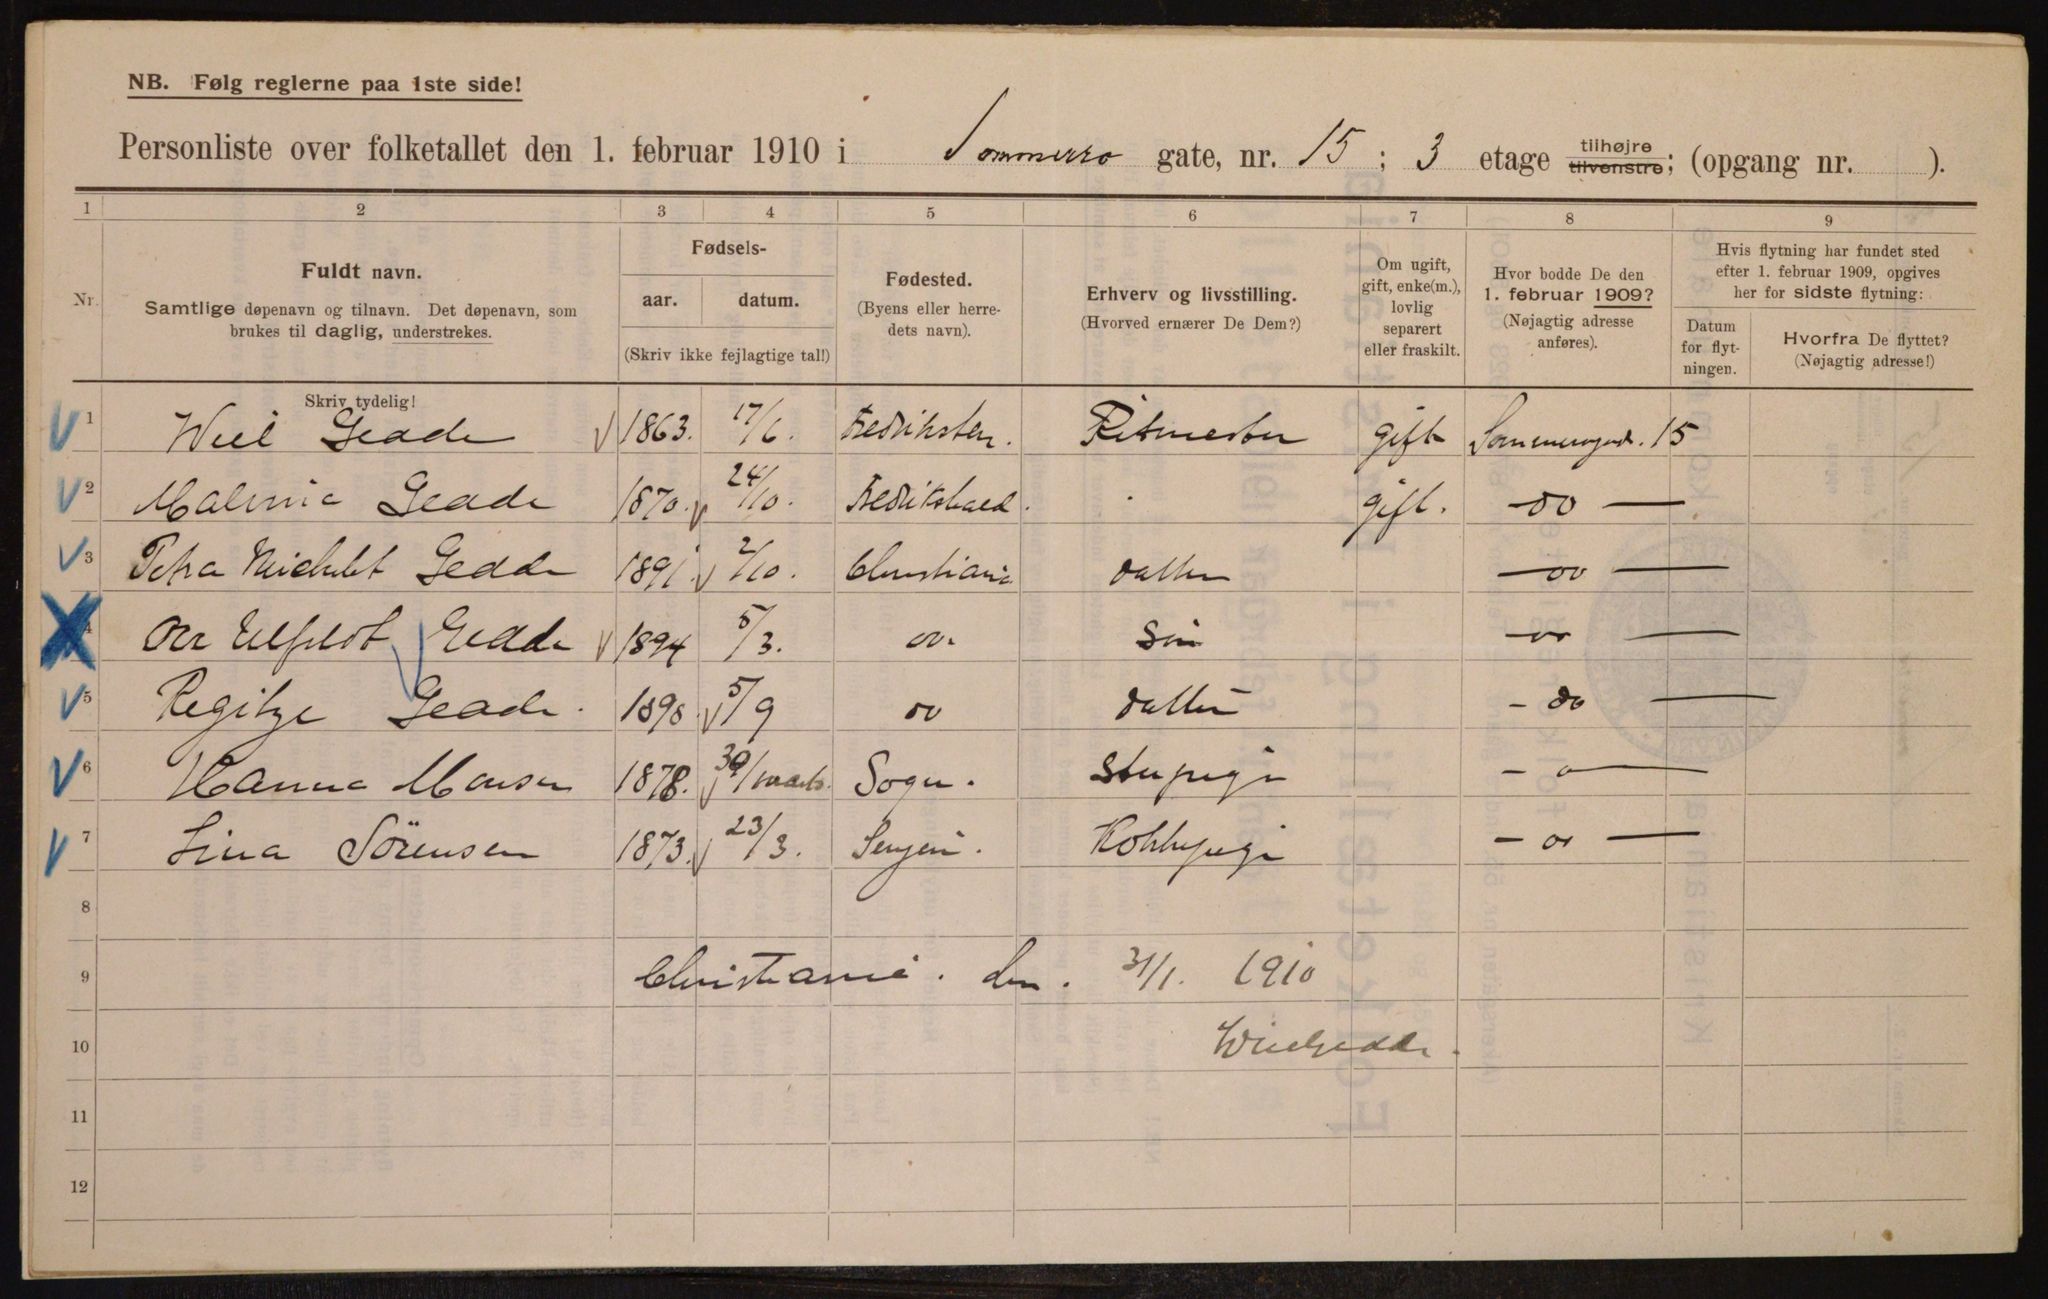 NB. Følg reglerne paa 1ste side!
Personliste over folketallet den 1. februar 1910 i Sommerro gate, nr. 15 ; 3 etage tilhøjre tilvenstre; (opgang nr. ).
1 2 3 4 5 6 7 8 9
Nr.
Fuldt navn.
Samtlige døpenavn og tilnavn. Det døpenavn, som
brukes til daglig, understrekes.
Skriv tydelig!
Fødsels-
aar. datum.
(Skriv ikke fejlagtige tal!)
Fødested.
(Byens eller herre-
dets navn).
Erhverv og livsstilling.
(Hvorved ernærer De Dem?)
Om ugift,
gift, enke(m.),
lovlig
separert
eller fraskilt.
Hvor bodde De den
1. februar 1909?
(Nøjagtig adresse
anføres).
Hvis flytning har fundet sted
efter 1. februar 1909, opgives
her for sidste flytning:
Datum
for flyt-
ningen.
Hvorfra De flyttet?
(Nøjagtig adresse!)
1 Gedde 1863. 17/6. Fredriksten. Ritmester gift 15
2 Gedde 1870. 24/10. Fredrikshald. gift. -do-
3 Petra Michelet Gedde 1891. 2/10. Christiania datter -do-
4 Gedde 1894 5/3. do. Søn -do-
5 Regitze Gedde. 1898 5/9 do datter -do-
6 Hanna Monsen 1878. 30/marts. Sogn. Stuepige -do-
7 Lina Sörensen 1873. 23/3. Senjen. Kokkepige -do-
8
9 Christiania. den. 31/1. 1910
10 Gedde.
11
12